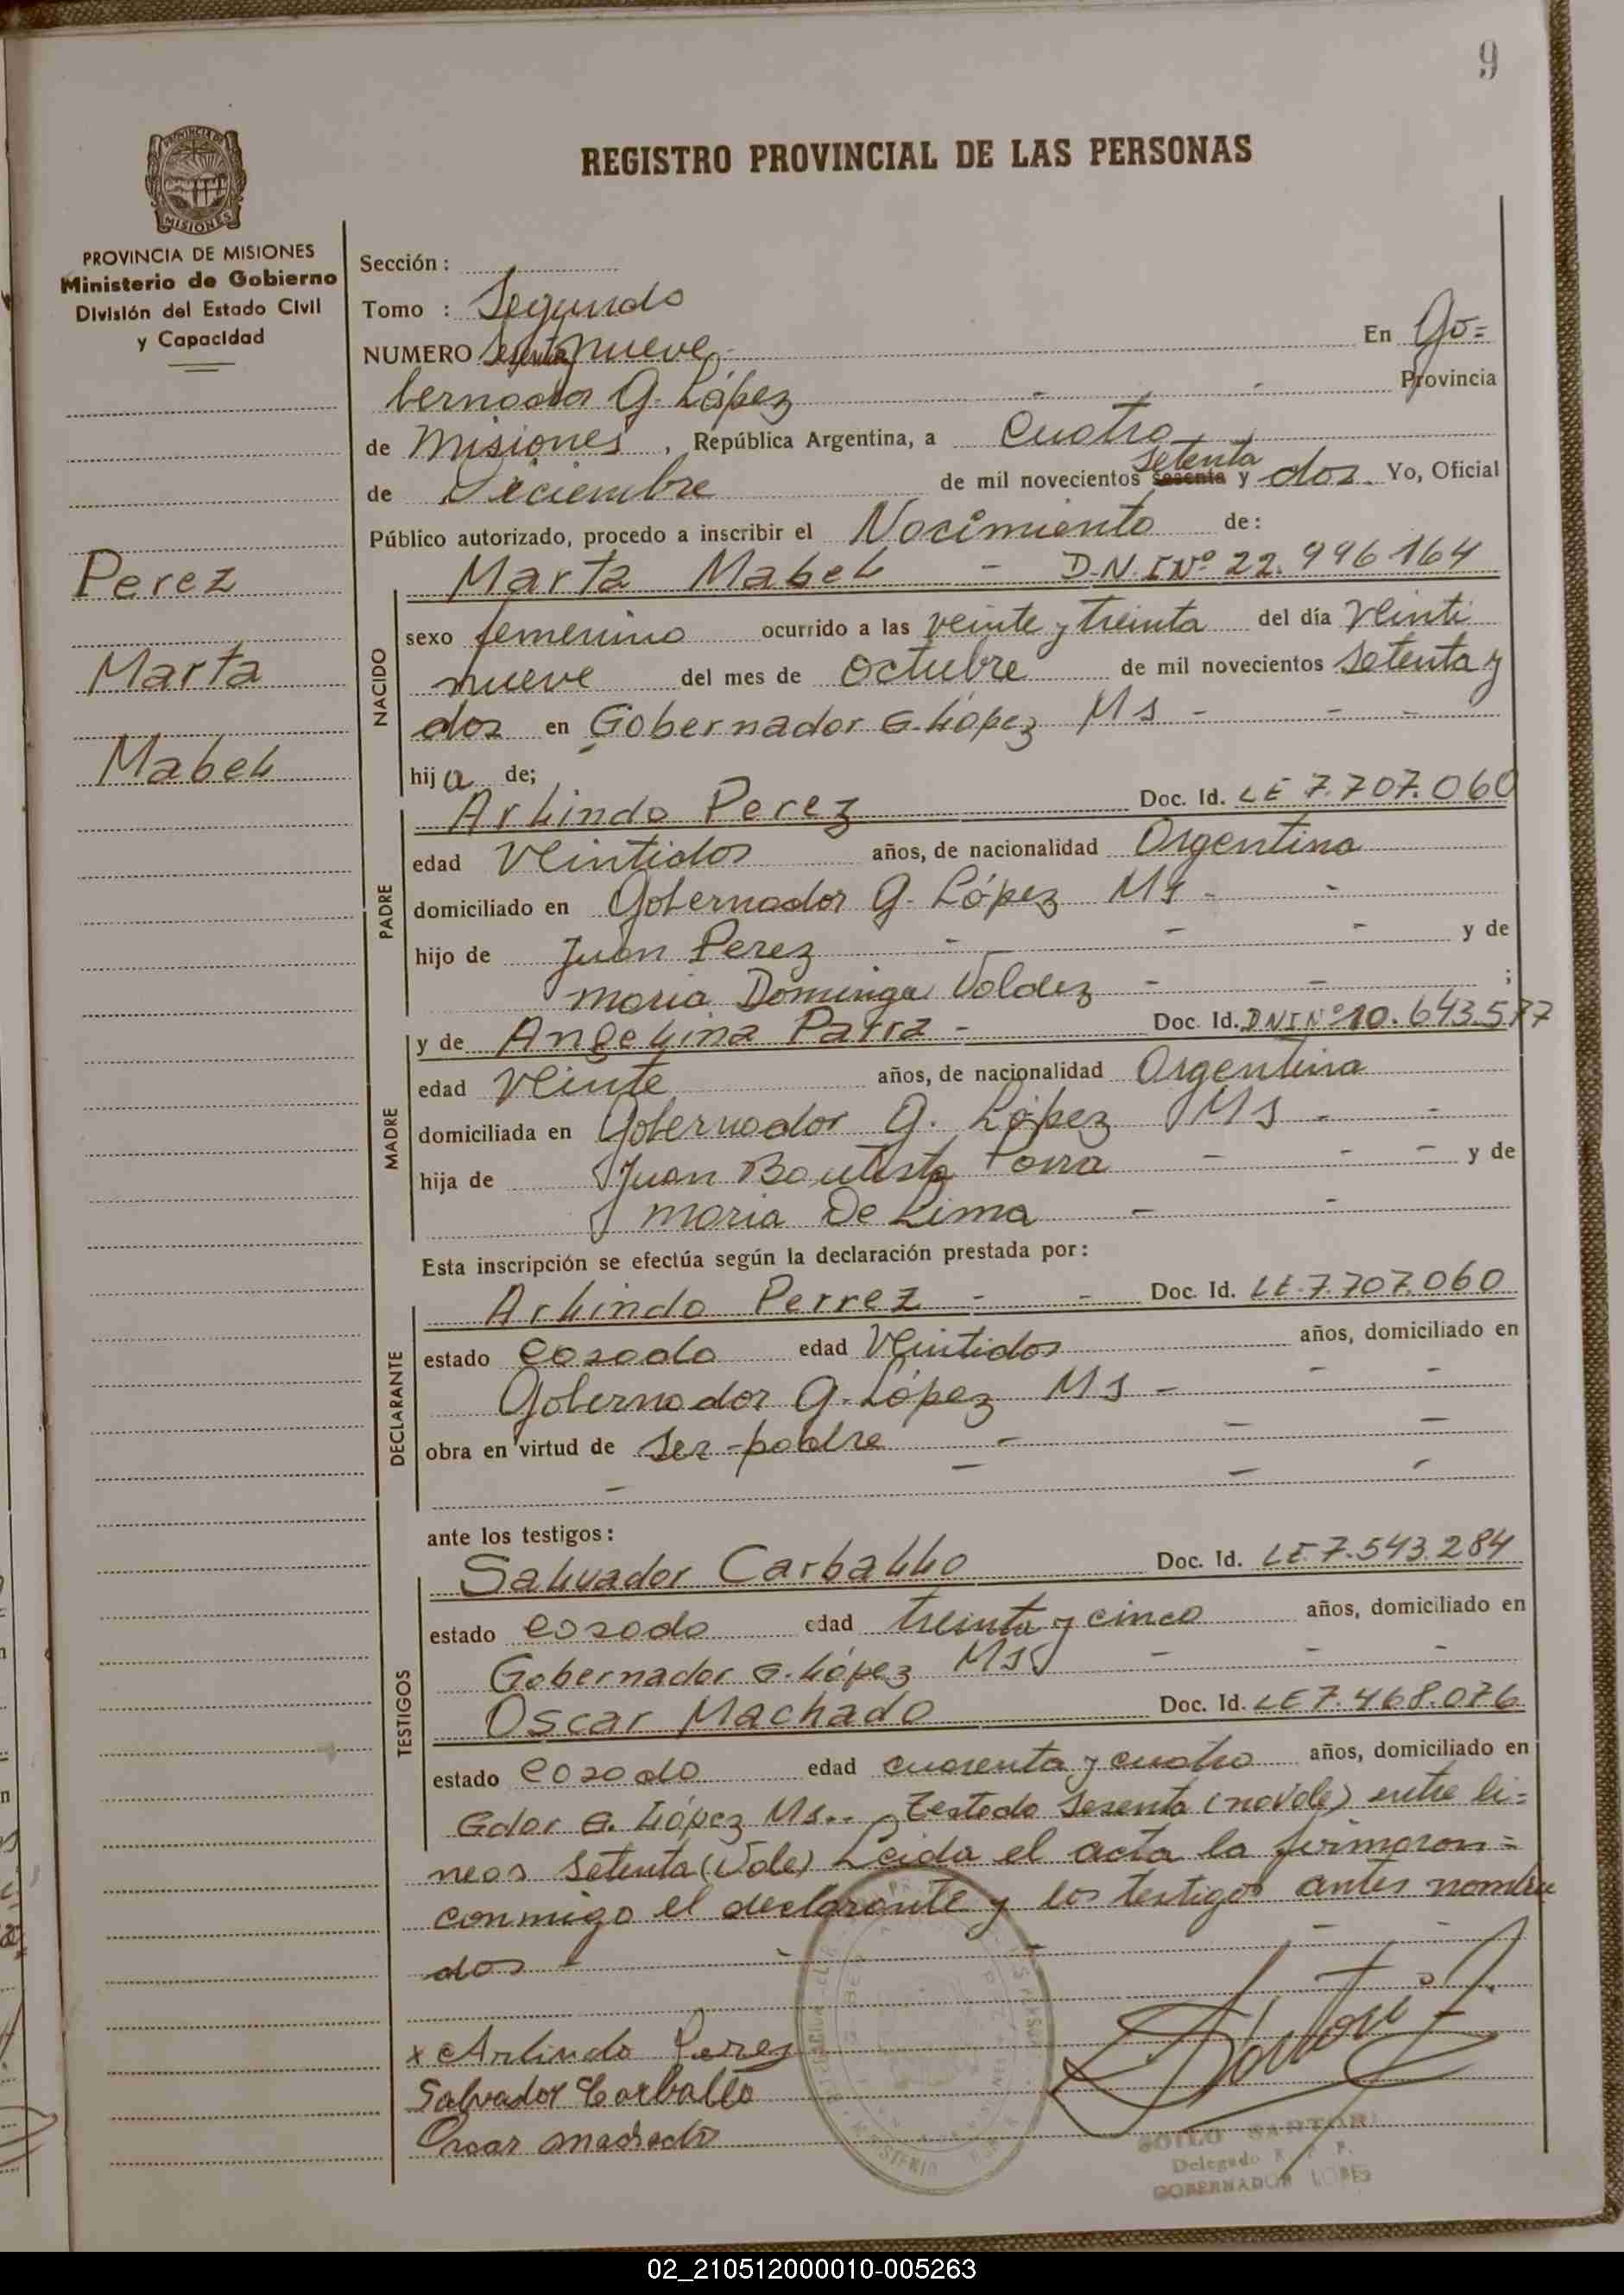 9
REGISTRO PROVINCIAL DE LAS PERSONAS
PROVINCIA DE MISIONES
MISIONES
PROVINCIA DE MISIONES
Ministerio de Gobierno
División del Estado Civil
y Capacidad
Perez
Marta
Mabel
Sección :
Tomo : Segundo
NUMERO Sesenta y nueve - En Go=
bernador G. López - - Provincia
de Misiones , República Argentina, a Cuatro
de Diciembre de mil novecientos sesenta setenta y dos. Yo, Oficial
Público autorizado, procedo a inscribir el Nacimiento de:
NACIDO
Marta Mabel - D.N.I Nº 22.996164
sexo femenino ocurrido a las veinte y treinta del día veinti
nueve del mes de octubre de mil novecientos setenta y
dos en Gobernador G. López Ms - - -
hija de;
PADRE
Arlindo Perez Doc. Id. LE 7.707.060
edad veintidos años, de nacionalidad Argentina
domiciliado en Gobernador G. López Ms - -
hijo de Juan Perez - - - y de
Maria Dominga Valdez - - ;
MADRE
y de Angelina Parra - Doc. Id. DNI Nº 10.643.577
edad veinte años, de nacionalidad Argentina
domiciliada en Gobernador G. López Ms - -
hija de Juan Bautista Parra - - - y de
Maria De Lima - -
Esta inscripción se efectúa según la declaración prestada por:
DECLARANTE
Arlindo Perrez - - Doc. Id. LE.7.707.060
estado casado edad veintidos años, domiciliado en
Gobernador G. López Ms - - -
obra en virtud de ser padre - - -
- - - -
ante los testigos:
TESTIGOS
Salvador Carballo Doc. Id. LE.7.543.284
estado casado edad treinta y cinco años, domiciliado en
Gobernador G. López Ms - - -
Oscar Machado Doc. Id. LE7.468.076
estado casado edad cuarenta y cuatro años, domiciliado en
Gdor G. López Ms.. Testado sesenta (no vale) entre li=
neas setenta (vale) Leida el acta la firmaron=
conmigo el declarante y los testigos antes nombra
dos - - -
x Arlindo Perez
Salvador Carballo
Oscar Machado
SANTORI
Delegado R. P. P.
GOBERNADOR LOPEZ
02_210512000010-005263